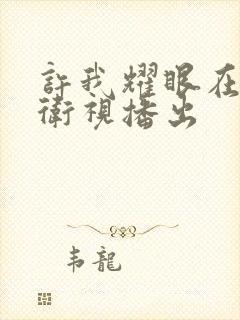 許我耀眼在
衛視播出
韦龍